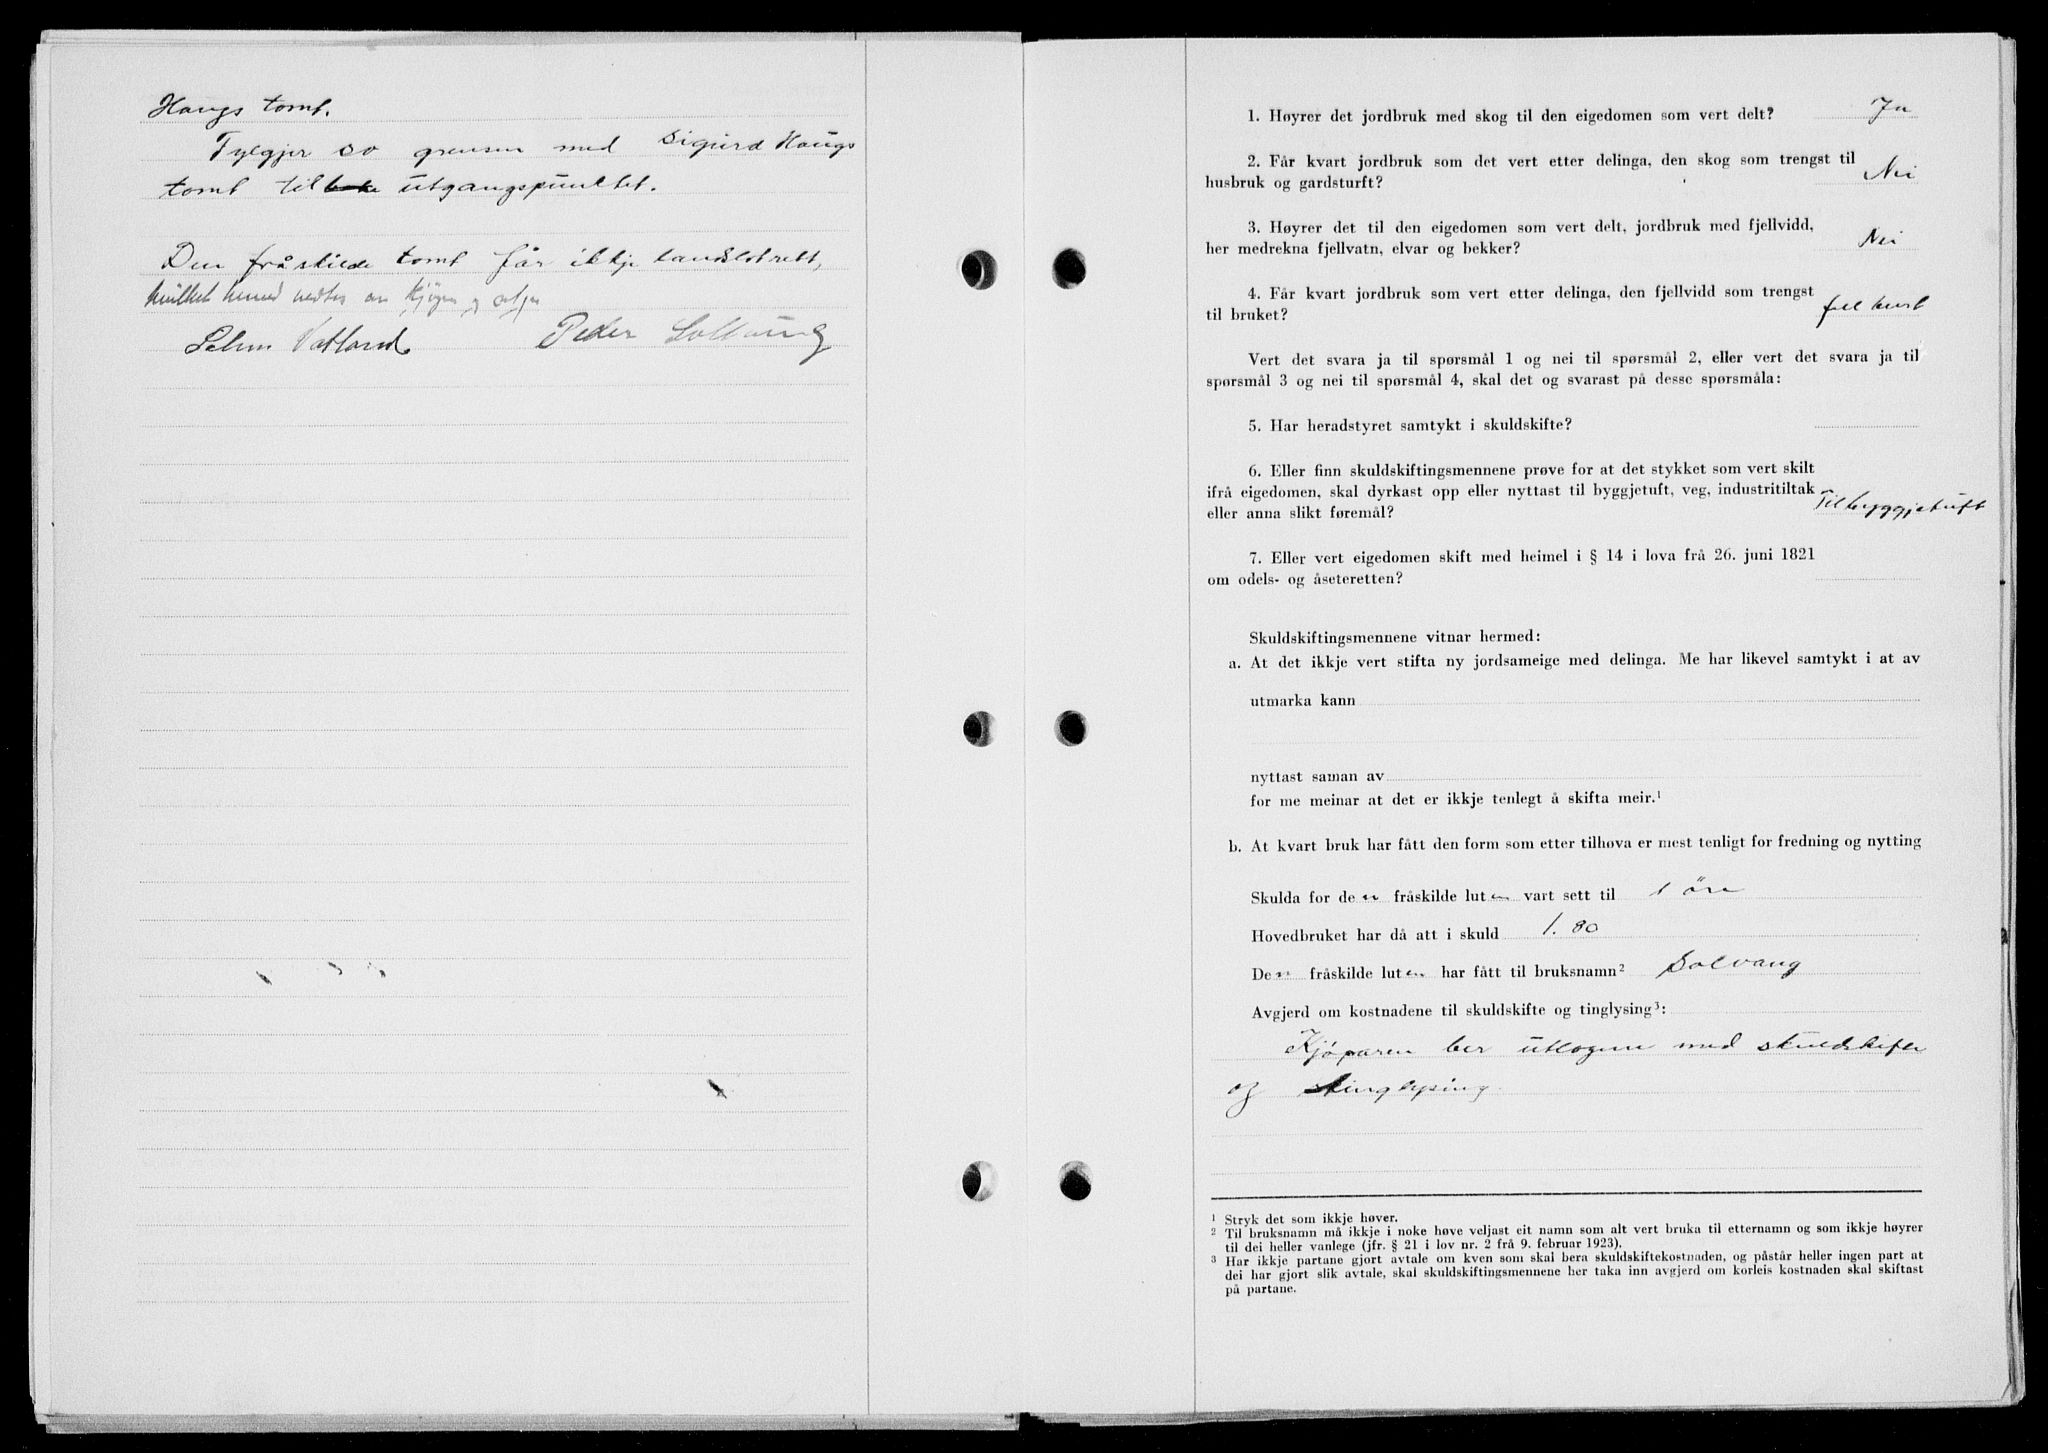 Haugs tomt.
Fylgjer so grensen med Sigurd Haugs
tomt til utgangspunktet.
Den fråskilde tomt får ikkje landslotrett,
hvilket herved vedtas av kjøper og
Selm Vatland Peder Solvang
1. Høyrer det jordbruk med skog til den eigedomen som vert delt? Ja
2. Får kvart jordbruk som det vert etter delinga, den skog som trengst til
husbruk og gardsturft? Nei
3. Høyrer det til den eigedomen som vert delt, jordbruk med fjellvidd,
her medrekna fjellvatn, elvar og bekker? Nei
4. Får kvart jordbruk som vert etter delinga, den fjellvidd som trengst
til bruket?
Vert det svara ja til spørsmål 1 og nei til spørsmål 2, eller vert det svara ja til
spørsmål 3 og nei til spørsmål 4, skal det og svarast på desse spørsmåla:
5. Har heradstyret samtykt i skuldskifte?
6. Eller finn skuldskiftingsmennene prøve for at det stykket som vert skilt
ifrå eigedomen, skal dyrkast opp eller nyttast til byggjetuft, veg, industritiltak
eller anna slikt føremål? Til byggjetuft
7. Eller vert eigedomen skift med heimel i § 14 i lova frå 26. juni 1821
om odels- og åseteretten?
Skuldskiftingsmennene vitnar hermed:
a. At det ikkje vert stifta ny jordsameige med delinga. Me har likevel samtykt i at av
utmarka kann
nyttast saman av
for me meinar at det er ikkje tenlegt å skifta meir.¹
b. At kvart bruk har fått den form som etter tilhøva er mest tenligt for fredning og nytting
Skulda for den fråskilde luten vart sett til 1 øre
Hovedbruket har då att i skuld 1.80
Den fråskilde luten har fått til bruksnamn² Solvang
Avgjerd om kostnadene til skuldskifte og tinglysing³:
Kjøparen ber utlogene med skuldskifte
og tinglysing.
¹ Stryk det som ikkje høver.
² Til bruksnamn må ikkje i noke høve veljast eit namn som alt vert bruka til etternamn og som ikkje høyrer
til dei heller vanlege (jfr. § 21 i lov nr. 2 frå 9. februar 1923).
³ Har ikkje partane gjort avtale om kven som skal bera skuldskiftekostnaden, og påstår heller ingen part at
dei har gjort slik avtale, skal skuldskiftingsmennene her taka inn avgjerd om korleis kostnaden skal skiftast
på partane.